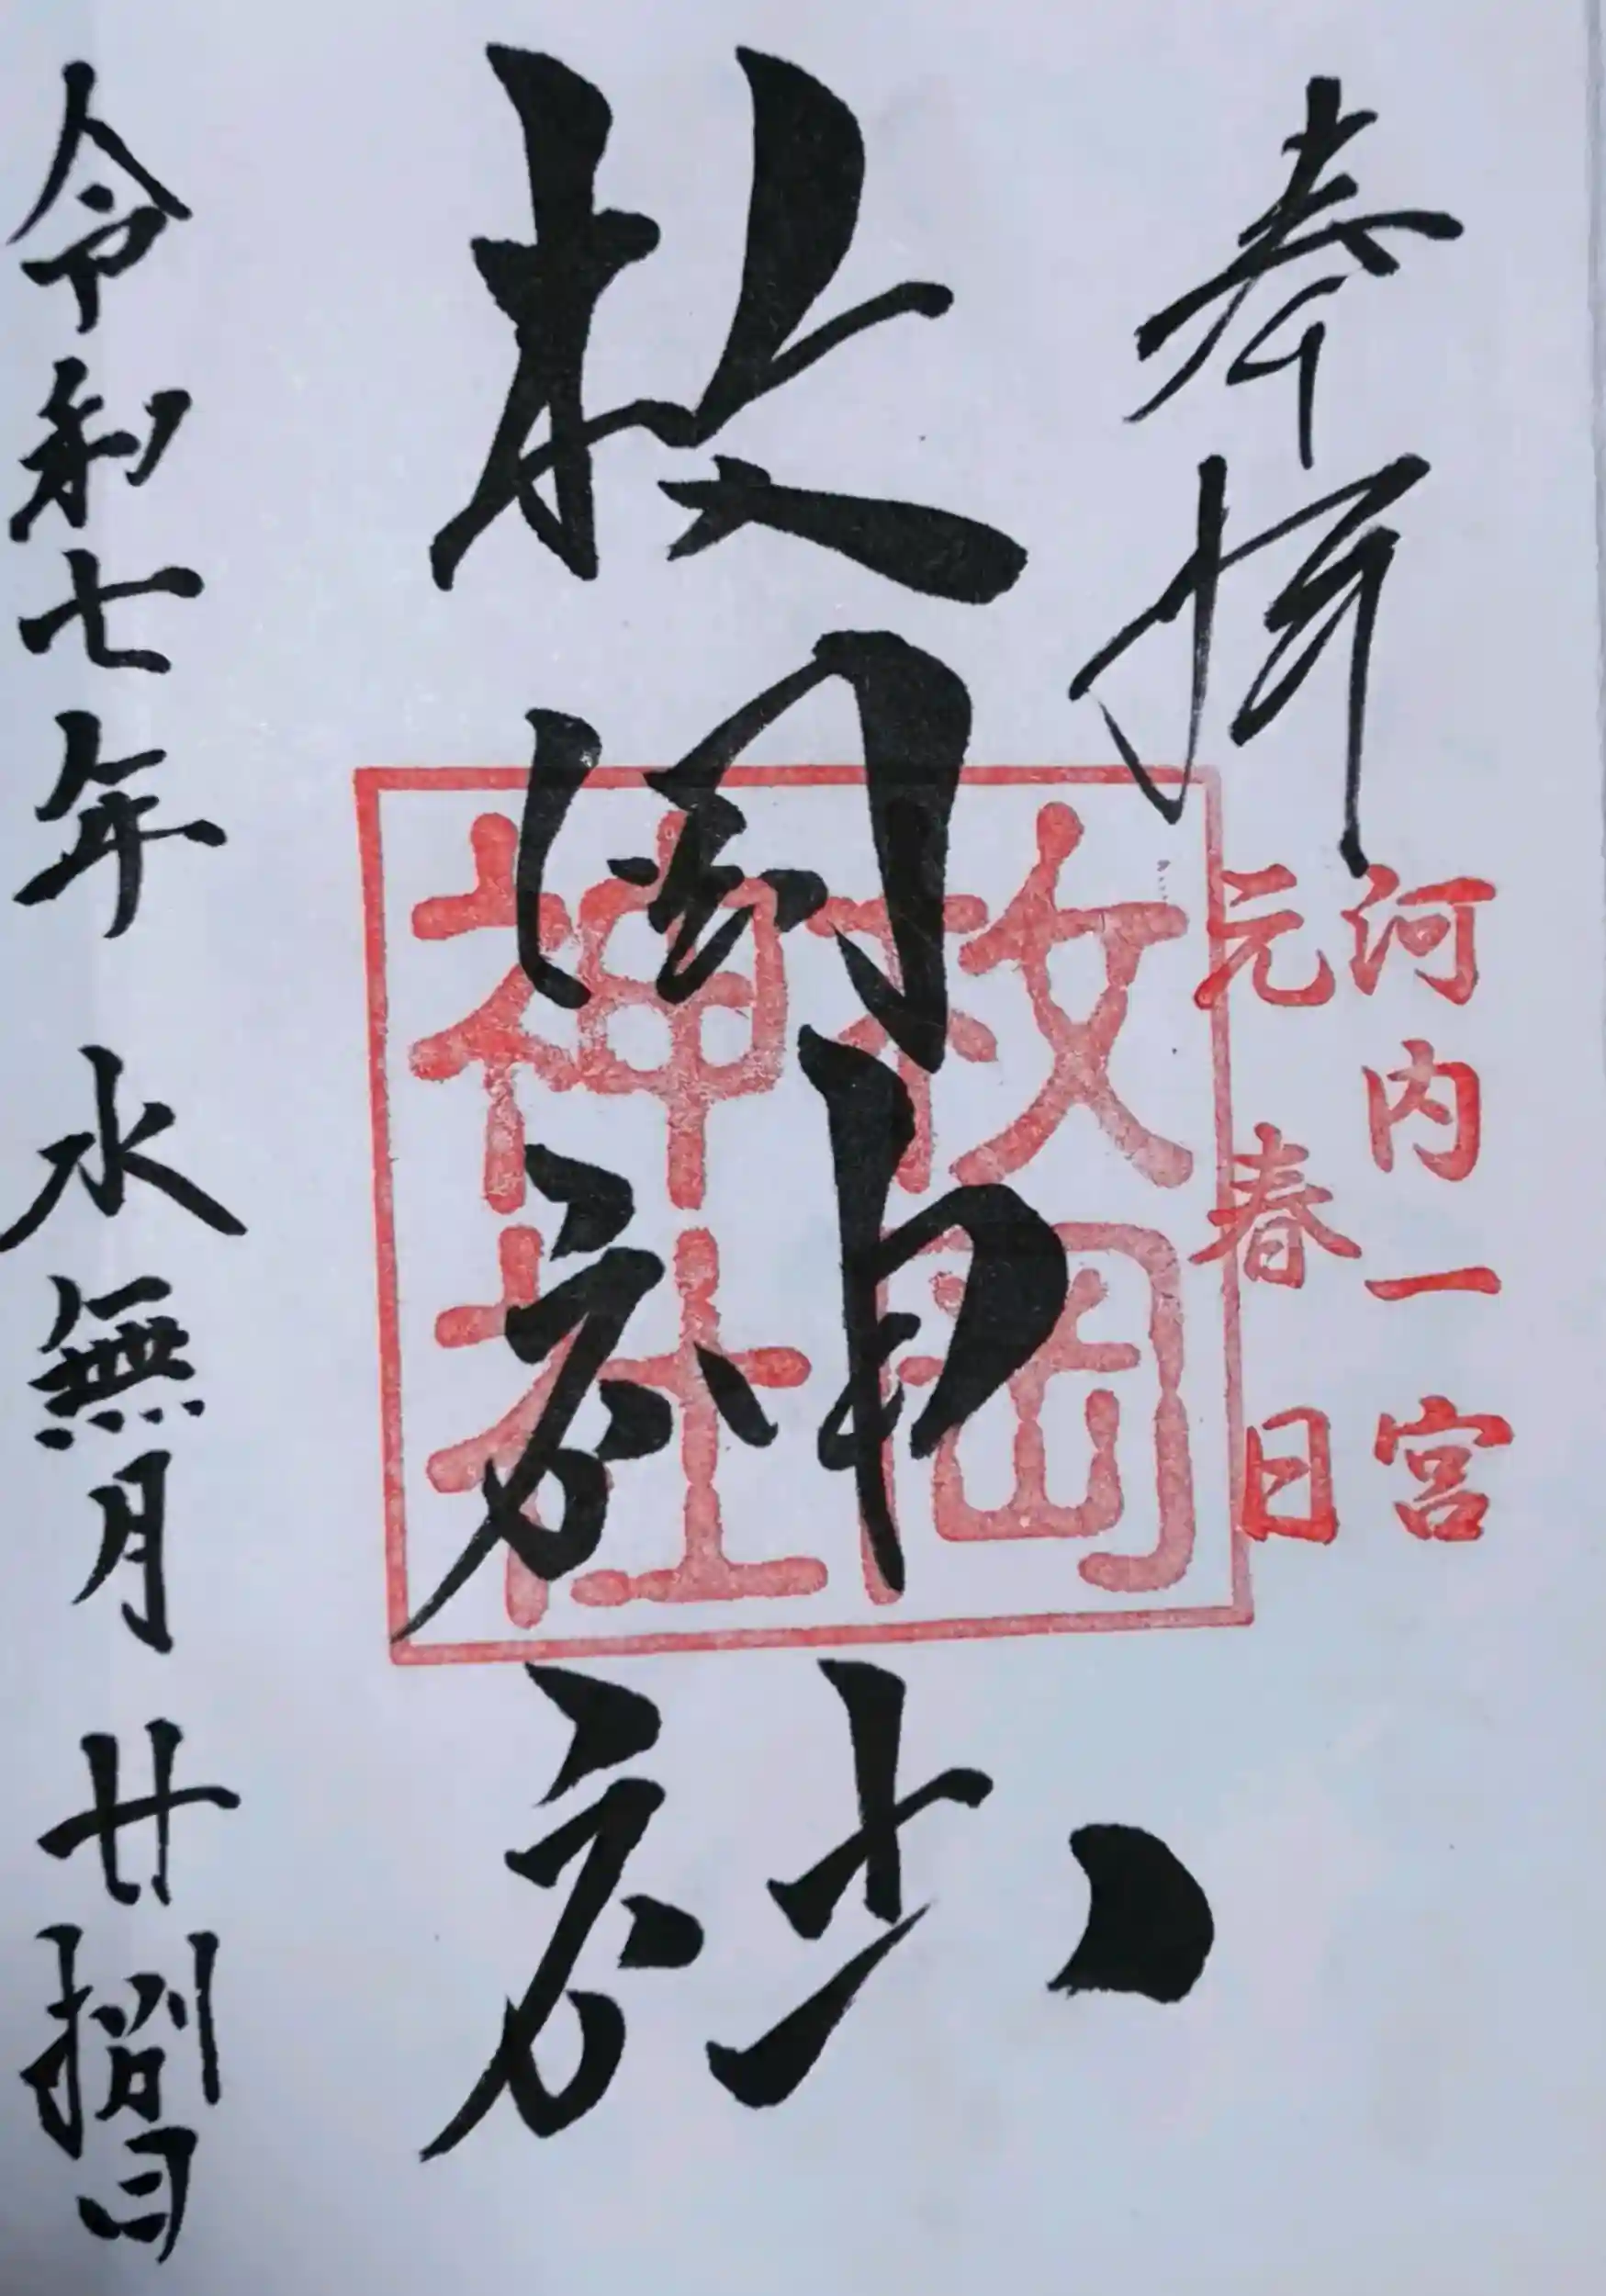 奉拝
河内一宮
元春日
枚岡神社
枚岡
神社
令和七年水無月廿捌日